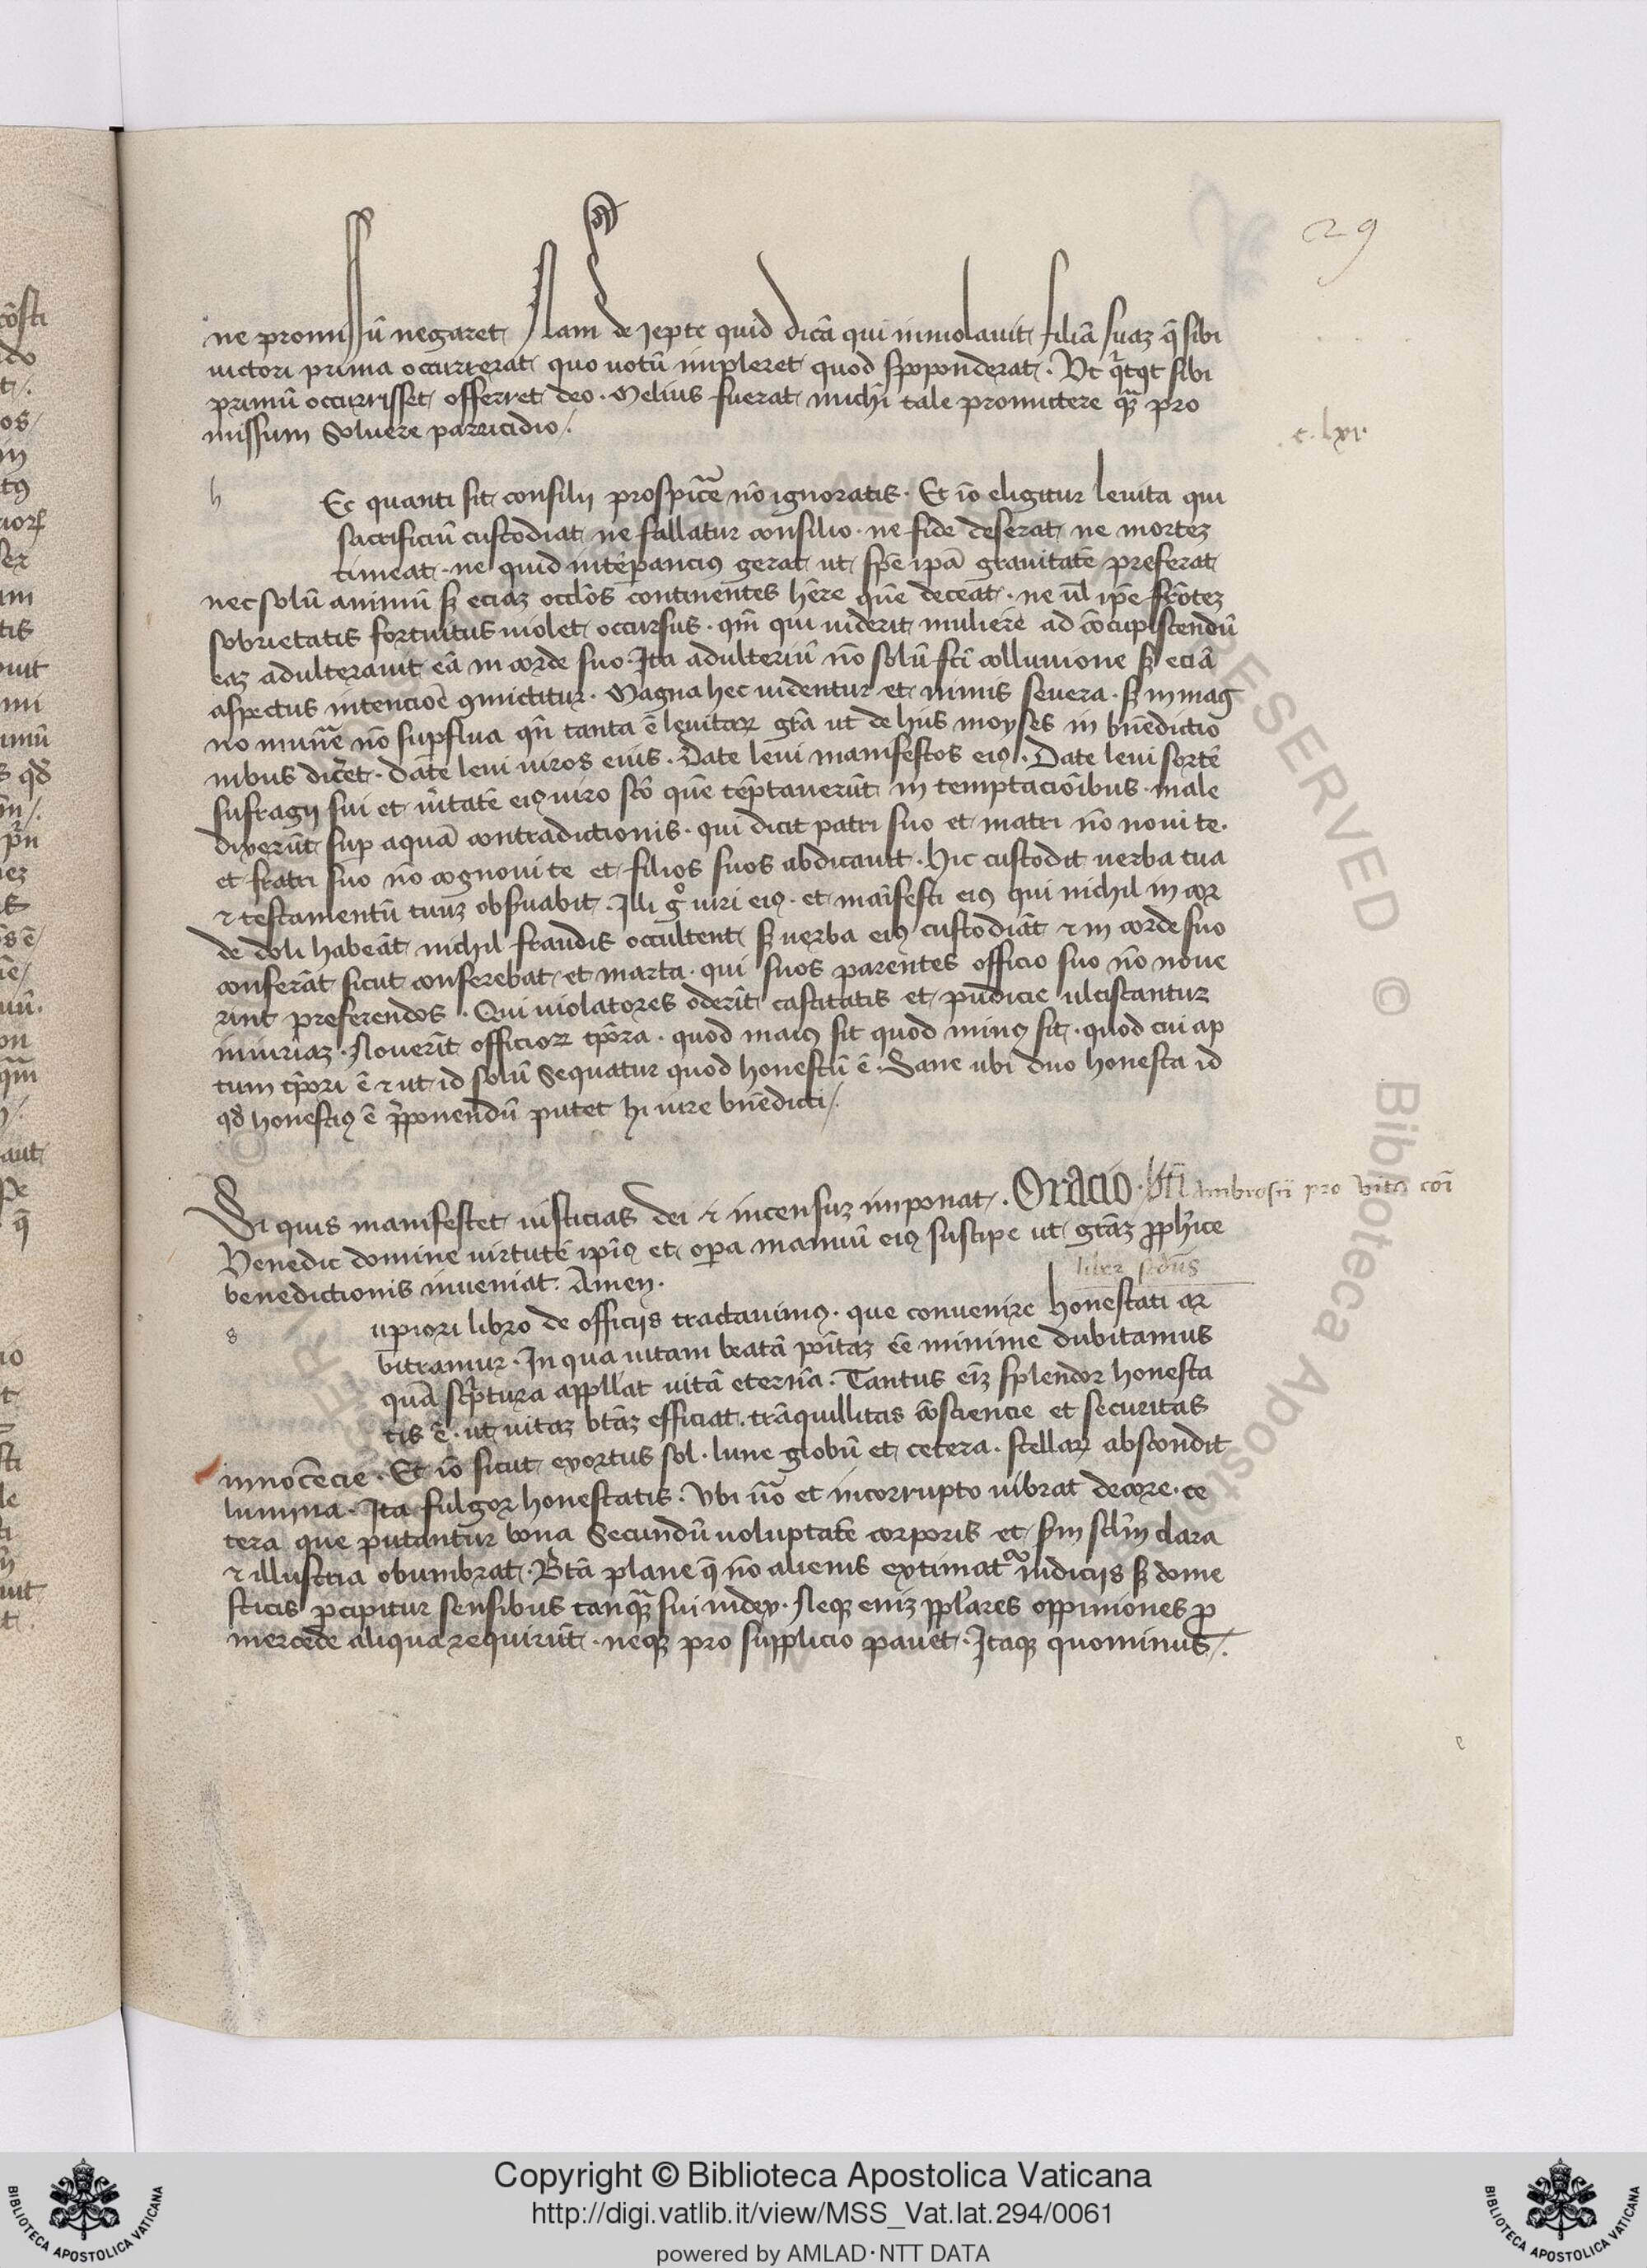 29
ne promissū negaret Nam de iepte quid dicā qui inmolauit filiā suaz q̄ sibi
uictori prima occurrerat quo uotū impleret quod spoponderat. Vt sibi
primū occurrisset offerret deo. Melius fuerat nichil tale promictere qz̄ pro
missum Soluere parricidio/.
c. lxi.
h
Ec quanti sit consilii prospic̄e nō ignoratis. Et iō eligitur leuita qui
sacrificiū custodiat ne fallatur consilio. ne fide deserat ne mortez
timeat. ne quid intēpanciꝰ gerat ut spē ipā grauitatē preferat
nec solū animū sꝫ eciaz oclōs continentes hēre quē deceat. ne ūl ipē frōtez
sobrietatis fortuitus uiolet occursus. qm̄ qui uiderit mulierē ad cōcupiscendū
eaz adulterauit eā in corde suo. Ita adulteriū nō solū fcī colluuione sꝫ eciā
aspectus intenciōe ꝯmictitur. Magna hec uidentur et nimis seuera. sꝫ in mag
no mun̄e nō supflua qn̄ tanta ē leuitaꝝ grā ut de hiis moyses in bn̄edictio
nibus dic̄et. date leui uiros eius. Date leui manifestos eiꝰ. Date leui sortē
sufragii sui et u̇itatē eiꝰ uiro scō quē tēptauerūt in temptaciōibus. male
dixerūt sup aquā contradictionis. qui dicit patri suo et matri nō noui te.
et fratri suo nō cognoui te et filios suos abdicauit. Hic custodit uerba tua
⁊ testamentū tuuz obseruabit. Illi gͦ uiri eiꝰ. et māifesti eiꝰ qui nichil in cor
de doli habeāt nichil fraudis occultent sꝫ uerba eiꝰ custodiāt ⁊ in corde suo
conferāt sicut conferebat et marta. qui suos parentes officio suo nō noue
rint preferendos. Qui uiolatores oderīt castitatis et pudicie ulciscantur
iniuriaz. Nouerīt officioꝝ tp̄ora. quod maiꝰ sit quod minꝰ sit. quod cui ap
tum tp̄ori ē ⁊ ut id solū Sequatur quod honestū ē. Sane ubi duo honesta id
qd̄ honestiꝰ ē p̄ponendū putet hi iure bn̄edicti/.
Si quis manifestet iusticias dei ⁊ incensuz imponat. Oracio. bt̄i ambrosii pro vita coī
Benedic domine uirtutē ipīꝰ et opa manuū eiꝰ suscipe ut grāz pph̄ice
benedictionis inueniat. Amen.
liber scdūs
s
upiori libro de officiis tractauimꝰ. que conuenire honestati ar
bitramur. In qua uitam beatā poītaz eē minime dubitamus
quā scptura appllat uitā eternā. Tantus eīz splendor honesta
tis ē. ut uitaz btāz efficiat. trāquillitas cōsciencie et securitas
innocēcie. Et iō sicut exortus sol. lune globū et cetera. stellaꝝ abscondit
lumina. Ita fulgor honestatis. Vbi ūo et incorrupto uibrat decore. ce
tera que putantur bona Secundū uoluptatē corporis et sm̄ sclm̄ clara
⁊ illustria obumbrat. Btā plane q̄ nō alienis extimatᵘʳ iudiciis sꝫ dome
sticis pcipitur sensibus tanqꝫ sui iudex. Neqꝫ eniz pplares oppiniones p
mercede aliqua requirūt. neqꝫ pro supplicio pauet. Itaqꝫ quominus/.
e
Copyright © Biblioteca Apostolica Vaticana
http://digi.vatlib.it/view/MSS_Vat.lat.294/0061
powered by AMLAD·NTT DATA
BIBLIOTECA APOSTOLICA VATICANA
BIBLIOTECA APOSTOLICA VATICANA